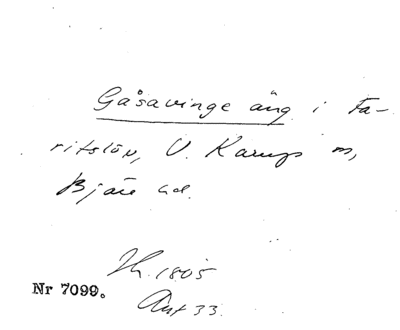 Gåsavinge äng i Fa-
ritslöv, V. Karups sn,
Bjäre hd.
Sk. 1805
Nr 7099.
Akt 33.